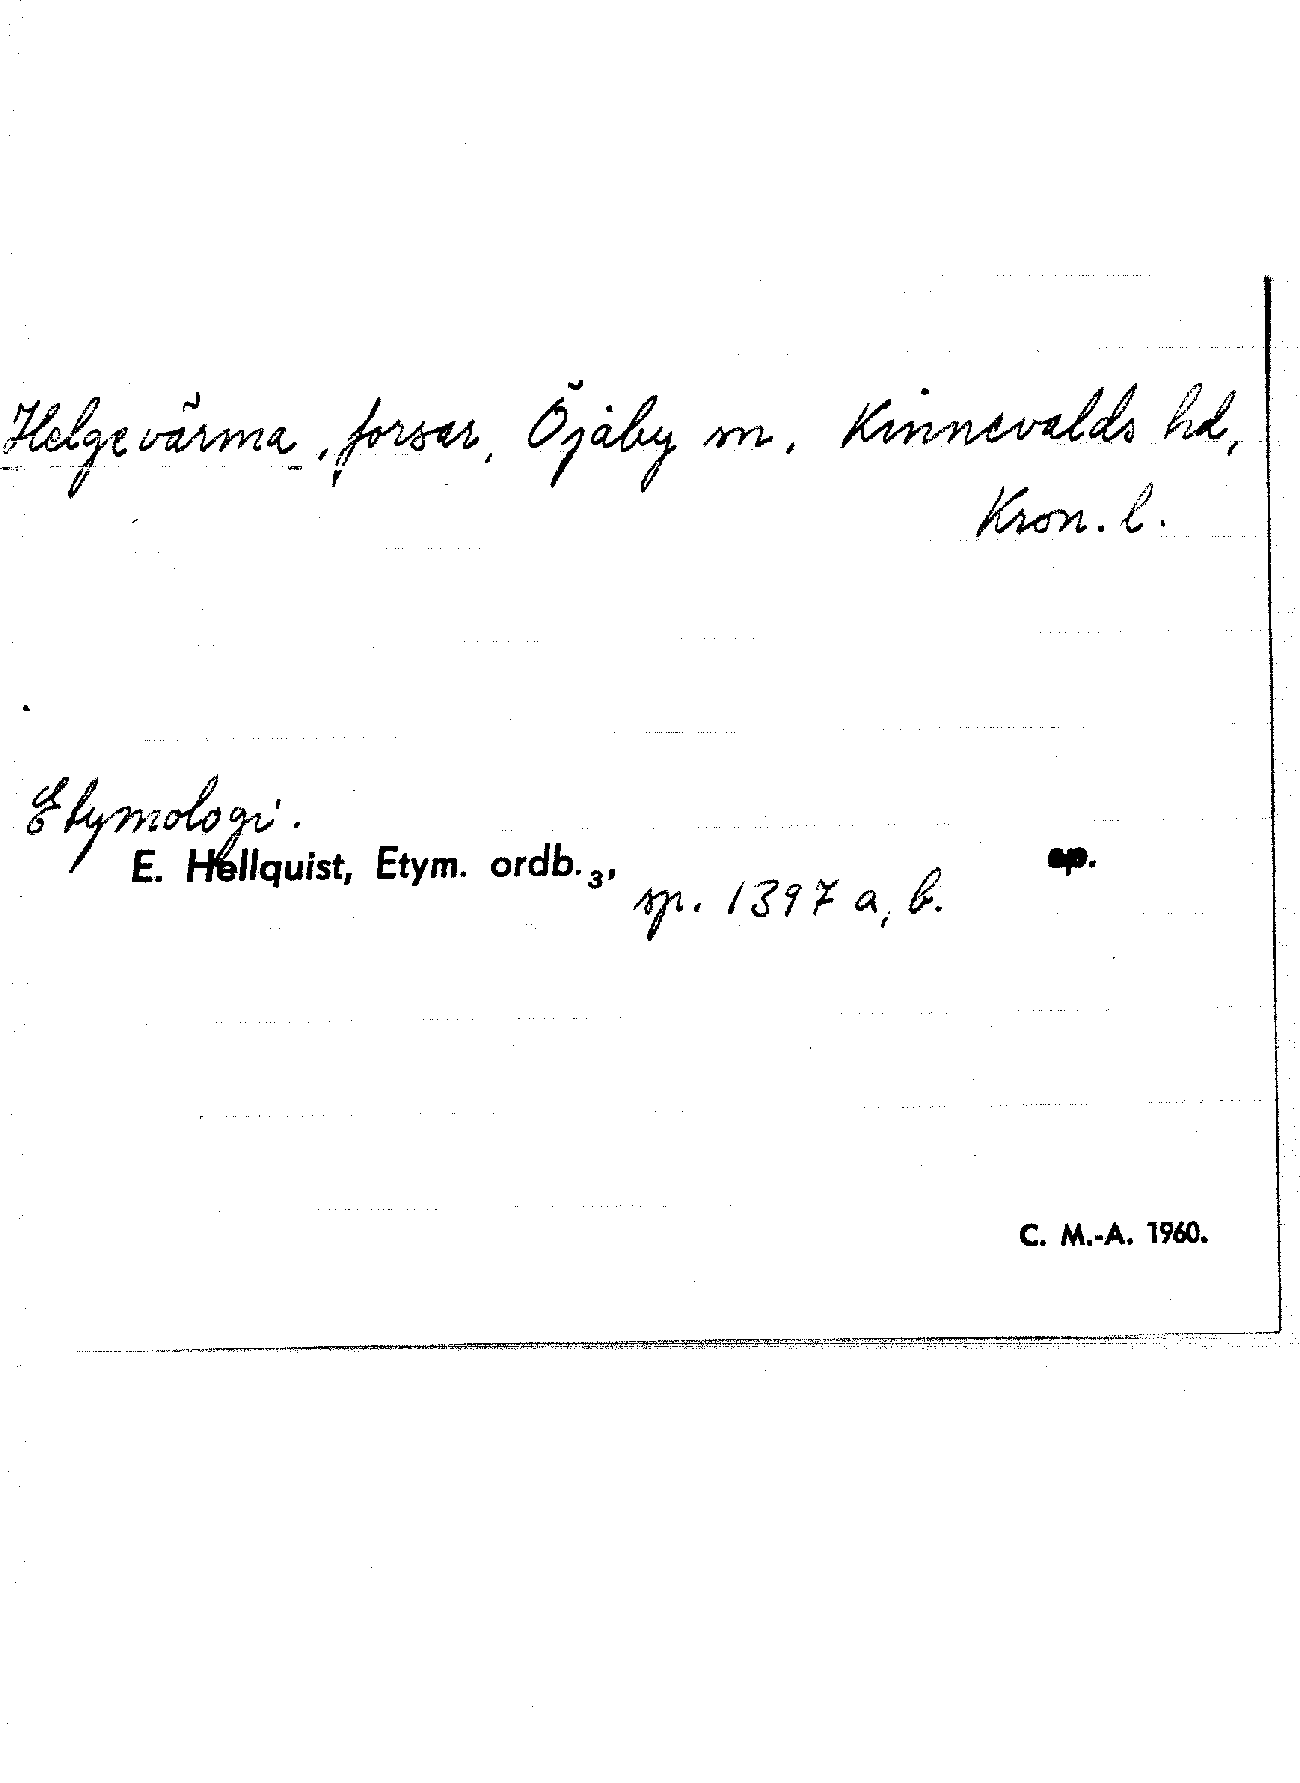 Helgevärma, forsar, Öjaby sn, Kinnevalds hd,
Kron. l.
Etymologi.
E. Hellquist, Etym. ordb.3, sp.
sp. 1397 a, b.
C. M.-A. 1960.